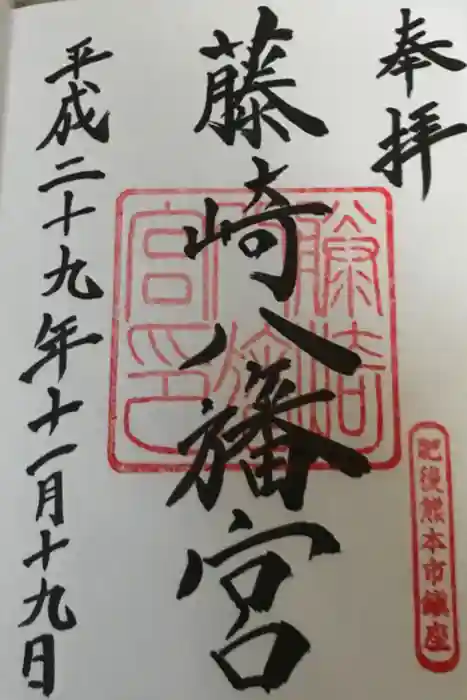 奉拝
藤崎八旛宮
平成二十九年十一月十九日
藤崎八旛宮印
肥後熊本市鎮座